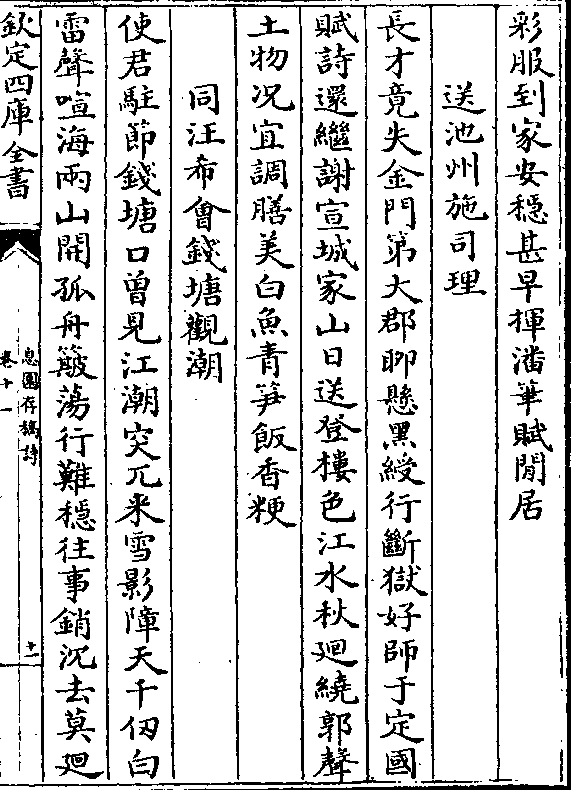 彩服到家安穩甚早揮潘筆賦閒居
送池州施司理
長才竟失金門第大郡聊懸黑綬行斷獄好師于定國
賦詩還繼謝宣城家山日送登樓色江水秋廻繞郭聲
土物况宜調膳美白魚青笋飯香粳
同汪希會錢塘觀潮
使君駐節錢塘口曾見江潮突兀来雪影障天千仞白
雷聲喧海兩山開孤舟簸蕩行難穩往事銷沉去莫廻
欽定四庫全書
息園存稿詩
卷十一
十一